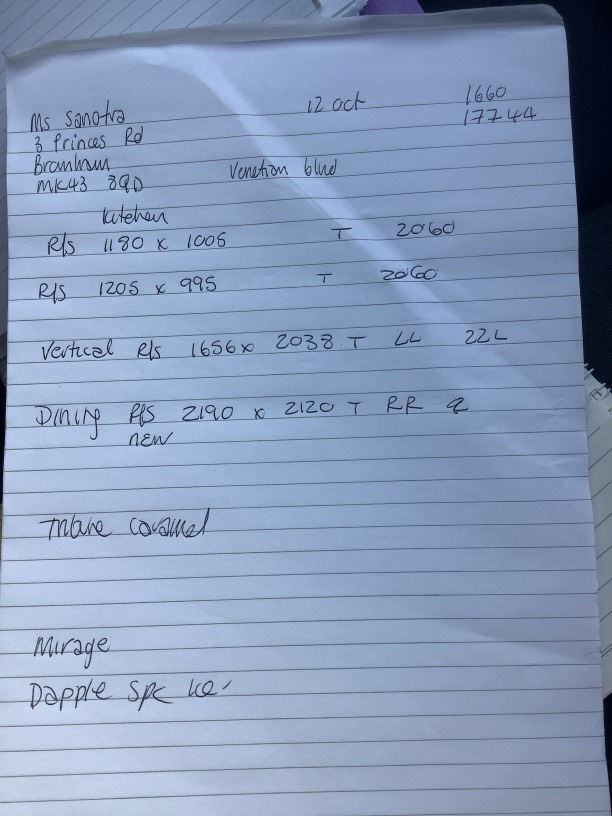 Ms Sanotra 12 oct 1660
3 Princes Rd 17744
Bromham
MK43 8QD Venetian blind
kitchen
R/s 1180 x 1005 T 2060
R/s 1205 x 995 T 2060
Vertical R/s 1656 x 2038 T LL 22L
Dining R/s 2190 x 2120 T RR
new
caramel
Mirage
Dapple Spc